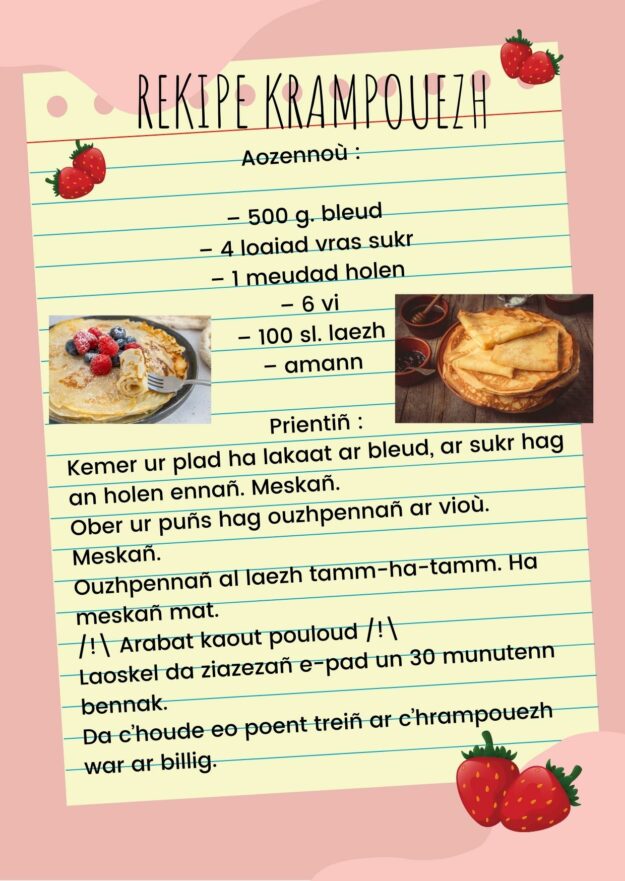 REKIPE KRAMPOUEZH
Aozennoù :
– 500 g. bleud
– 4 loaiad vras sukr
– 1 meudad holen
– 6 vi
– 100 sl. laezh
– amann
Prientiñ :
Kemer ur plad ha lakaat ar bleud, ar sukr hag
an holen ennañ. Meskañ.
Ober ur puñs hag ouzhpennañ ar vioù.
Meskañ.
Ouzhpennañ al laezh tamm-ha-tamm. Ha
meskañ mat.
/!\ Arabat kaout pouloud /!\
Laoskel da ziazezañ e-pad un 30 munutenn
bennak.
Da c’houde eo poent treiñ ar c’hrampouezh
war ar billig.